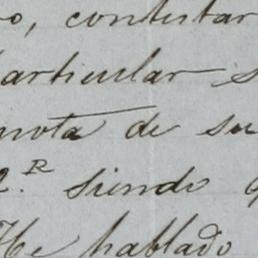 contestar
particular
nota de su
siendo
He hablado